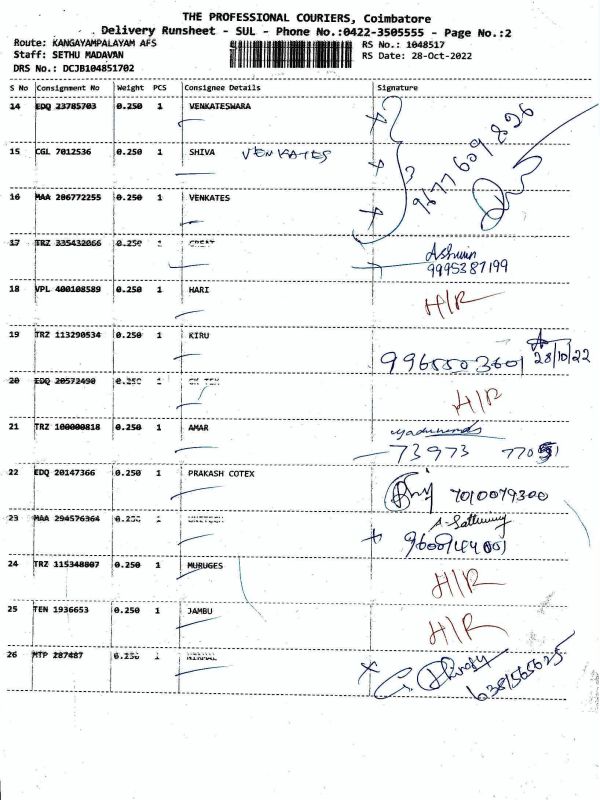 THE PROFESSIONAL COURIERS, Coimbatore
Delivery Runsheet - SUL - Phone No.:0422-3505555 - Page No.:2
Route: KANGAYAMPALAYAM AFS
RS No.: 1048517
Staff: SETHU MADAVAN
RS Date: 28-Oct-2022
DRS No.: DCJB104851702
S No Consignment No Weight PCS Consignee Details Signature
14 EDQ 23785703 0.250 1 VENKATESWARA
9677609826
15 CGL 7012536 0.250 1 SHIVA VENKATES
16 MAA 206772255 0.250 1 VENKATES
17 TRZ 335432066 0.250 1 GREAT
Ashwin
9995387199
18 VPL 400108589 0.250 1 HARI H/R
19 TRZ 113290534 0.250 1 KIRU
28/10/22
20 EDQ 20572490 0.250 1 GK TEX H/R
21 TRZ 100000818 0.250 1 AMAR
73973
22 EDQ 20147366 0.250 1 PRAKASH COTEX 7010079300
23 MAA 294576364 0.250 1
24 TRZ 115348807 0.250 1 MURUGES H/R
25 TEN 1936653 0.250 1 JAMBU H/R
26 MTP 287487 0.250 1 NIRMAL